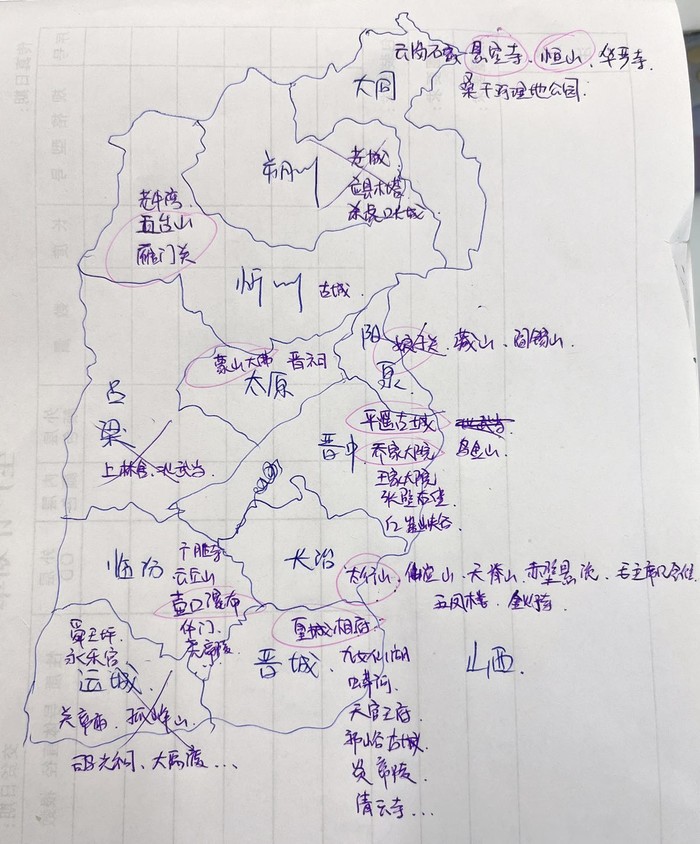 云岗石窟 悬空寺、恒山、华严寺.
大同
桑干河湿地公园.
朔州
老城
应县木塔
杀虎口长城
老牛湾
五台山
雁门关
忻州 古城.
阳泉
娘子关、藏山、阎锡山
蒙山大佛 晋祠
太原
吕梁
上林舍、北武当
晋中
平遥古城
乔家大院 乌金山.
王家大院
张壁古堡
红崖峡谷
临汾
云丘山
壶口瀑布
尧帝陵
长治
太行山、
天脊山、赤壁悬流、
五凤楼、
皇城相府
晋城
九女仙湖
天官王府
郭峪古城
炎帝陵
清云寺...
山西.
舜王坪
永乐宫
运城
关帝庙、孤峰山
司马光祠、大禹渡...